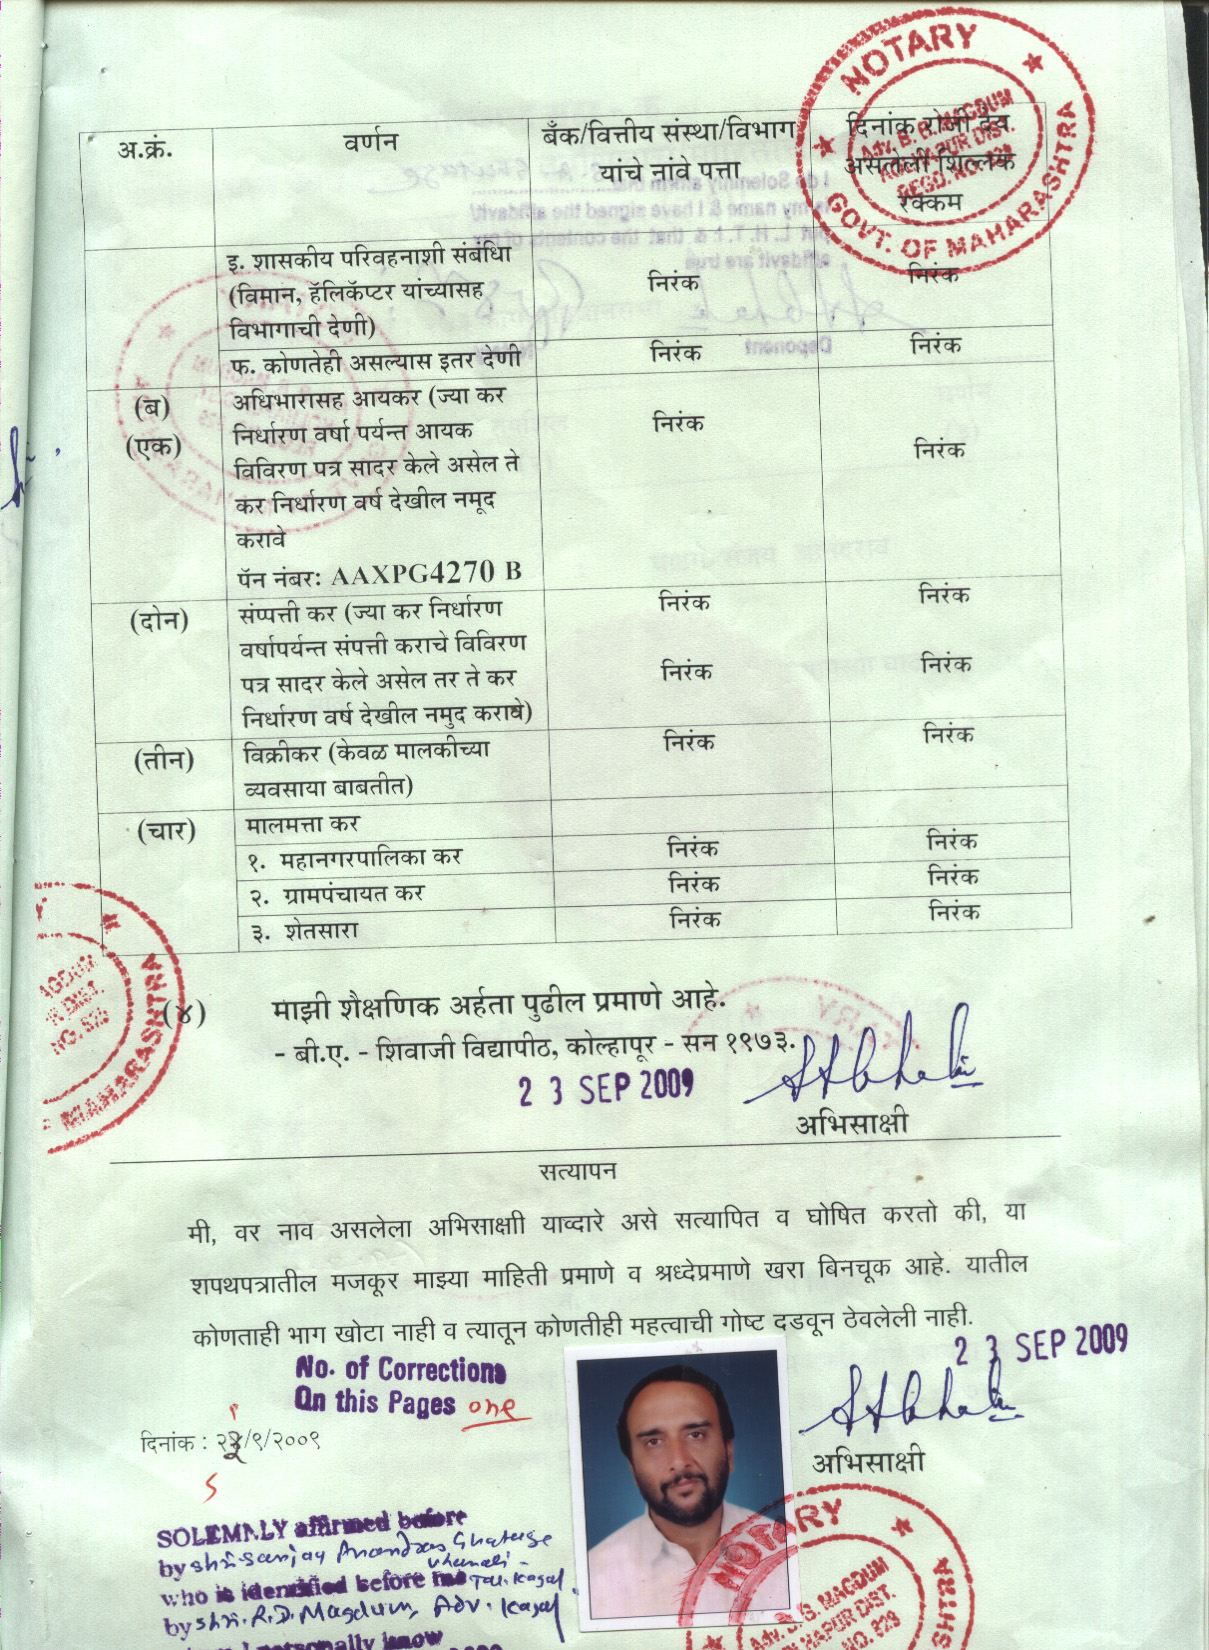 NOTARY
Adv. B. B. MAGDUM
KOLHAPUR DIST.
REGD. NO. 828
GOVT. OF MAHARASHTRA
अ.क्रं. वर्णन बँक/वित्तीय संस्था/विभाग यांचे नांवे पत्ता दिनांक रोजी देय असलेली शिल्लक रक्कम
इ. शासकीय परिवहनाशी संबंधि निरंक निरंक
(विमान, हॅलिकॅप्टर यांच्यासह
विभागाची देणी)
फ. कोणतेही असल्यास इतर देणी निरंक निरंक
(ब) अधिभारासह आयकर (ज्या कर निरंक
(एक) निर्धारण वर्षा पर्यन्त आयक निरंक
विविरण पत्र सादर केले असेल ते
कर निर्धारण वर्ष देखील नमूद
करावे
पॅन नंबर: AAXPG4270 B
(दोन) संप्पत्ती कर (ज्या कर निर्धारण निरंक निरंक
वर्षापर्यन्त संपत्ती कराचे विविरण
पत्र सादर केले असेल तर ते कर निरंक निरंक
निर्धारण वर्ष देखील नमुद करावे)
(तीन) विक्रीकर (केवळ मालकीच्या निरंक निरंक
व्यवसाया बाबतीत)
(चार) मालमत्ता कर
१. महानगरपालिका कर निरंक निरंक
२. ग्रामपंचायत कर निरंक निरंक
३. शेतसारा निरंक निरंक
(४) माझी शैक्षणिक अर्हता पुढील प्रमाणे आहे.
- बी.ए. - शिवाजी विद्यापीठ, कोल्हापूर - सन १९७३.
2 3 SEP 2009
अभिसाक्षी
सत्यापन
मी, वर नाव असलेला अभिसाक्षाी याव्दारे असे सत्यापित व घोषित करतो की, या
शपथपत्रातील मजकूर माझ्या माहिती प्रमाणे व श्रध्देप्रमाणे खरा बिनचूक आहे. यातील
कोणताही भाग खोटा नाही व त्यातून कोणतीही महत्वाची गोष्ट दडवून ठेवलेली नाही.
2 3 SEP 2009
No. of Corrections
On this Pages one
दिनांक : २३/९/२००९
अभिसाक्षी
SOLEMNLY affirmed before
by shri. Sanjay Anandrao Ghatage
who is identified before me Tal. Kagal.
by shri. R.D. Magdum, Adv. Kagal
personally know
NOTARY
Adv. B. B. MAGDUM
KOLHAPUR DIST.
NO. 828